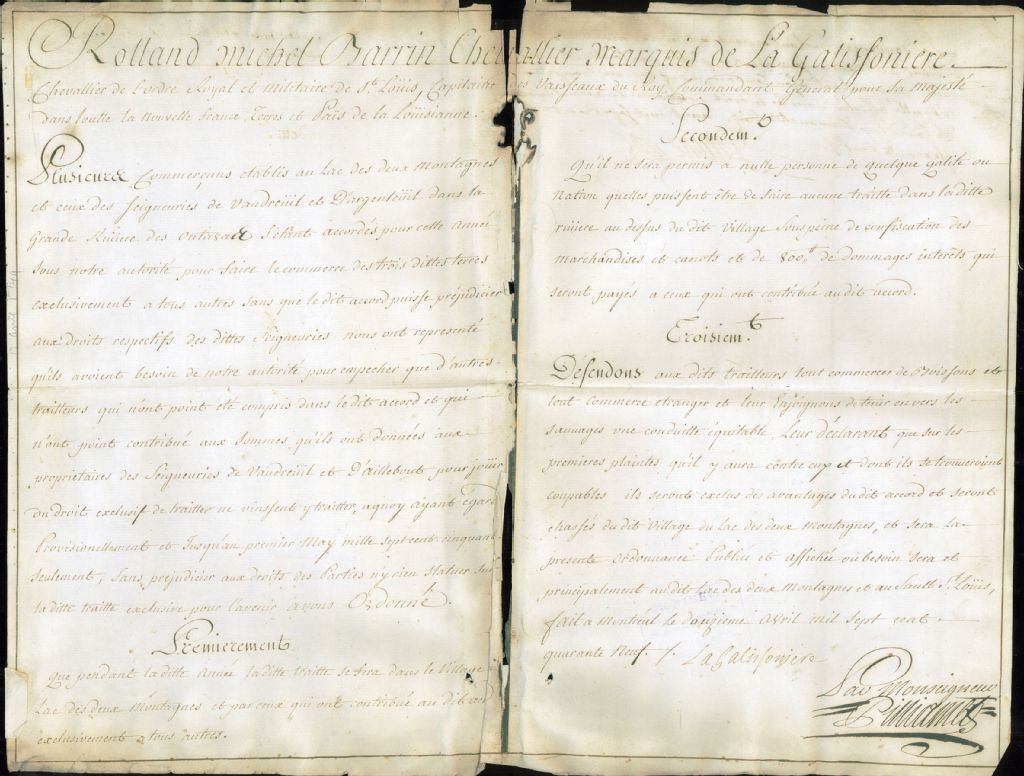 Rolland Michel Barrin Chevallier Marquis de La Galissoniere.
Chevallier de l'ordre Royal et militaire de St. Loüis, Capitaine des Vaisseaux du Roy, Commandant General pour sa majesté
dans toutte la Nouvelle france Terres et Païs de la Loüisianne.
Plusieurs Commerçans établis au Lac des deux Montagnes
et ceux des Seigneuries de Vaudreüil et D'argenteüil dans la
Grande Riüiere des Outa8acs S'étant accordés pour cette année
sous notre autorité pour faire le commerce des trois dittes terres
exclusivement a tous autres sans que le dit accord puisse préjudicier
aux droits respectifs des dittes Seigneuries nous ont representé
qu'ils avoient besoin de notre autorité pour empecher que d'autres
traitteurs qui n'ont point été compris dans le dit accord et qui
n'ont point contribué aux sommes qu'ils ont données aux
propriétaires des Seigneuries de Vaudreüil et D'aillebout pour joüir
du droit exclusif de traitter ne vinssent y traitter, aquoy ayant égard
Provisionellement et Jusqu'au premier May mille sept cent cinquante
seulement, sans prejudicier aux droits des Parties n'y rien statuer sur
la ditte traitte exclusive pour l'avenir avons Ordonné.
Premierement
Que pendant la ditte Année la ditte traitte se fera dans le Village
Lac des deux Montagnes et par ceux qui ont contribué au dit
exclusivement a tous autres.
Secondemt.
Qu'il ne sera permis a nulle personne de quelque qalité ou
Nation quelles puissent être de faire aucune traitte dans la ditte
riüiere au dessus du dit Village sous peine de confiscation des
marchandises et canots et de 800₶ de dommages interêts qui
seront payés a ceux qui ont contribué au dit accord.
Troisiemt.
Défendons aux dits traitteurs tout commerces de Boissons et
tout commerce etranger et leur Enjoignons de tenir envers les
sauvages une conduitte équitable, Leur déclarant que sur les
premieres plaintes qu'il y aura contre eux et dont ils se trouveroient
coupables ils seront exclus des avantages du dit accord et seront
chassés du dit Village du Lac des deux Montagnes, et sera La
presente Ordonnance Publiée et affichée ou besoin sera et
principalement au dit Lac des deux Montagnes et au Sault St. Loüis,
fait a Montréal le douzieme Avril mil sept cent
quarante Neuf. /. La Galissonière
Par Monseigneur